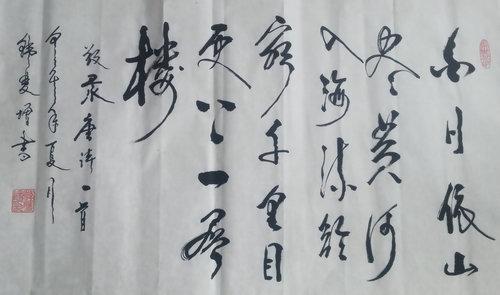 白日依山
尽黄河
入海流欲
穷千里目
更上一层
楼
录唐诗一首
年夏月
书